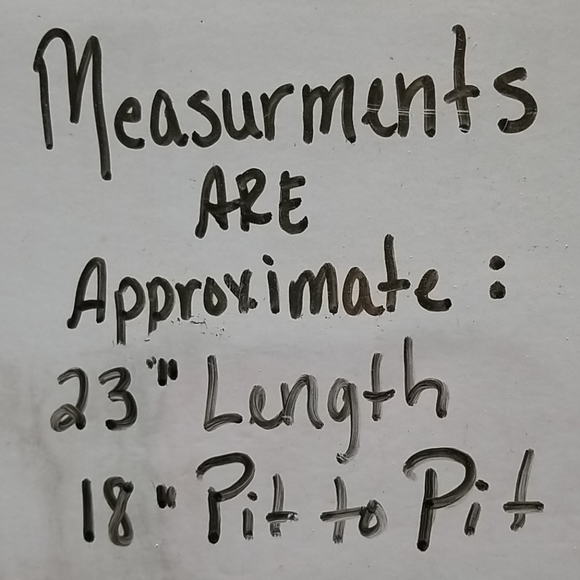 Measurments
ARE
Approximate:
23" Length
18" Pit to Pit